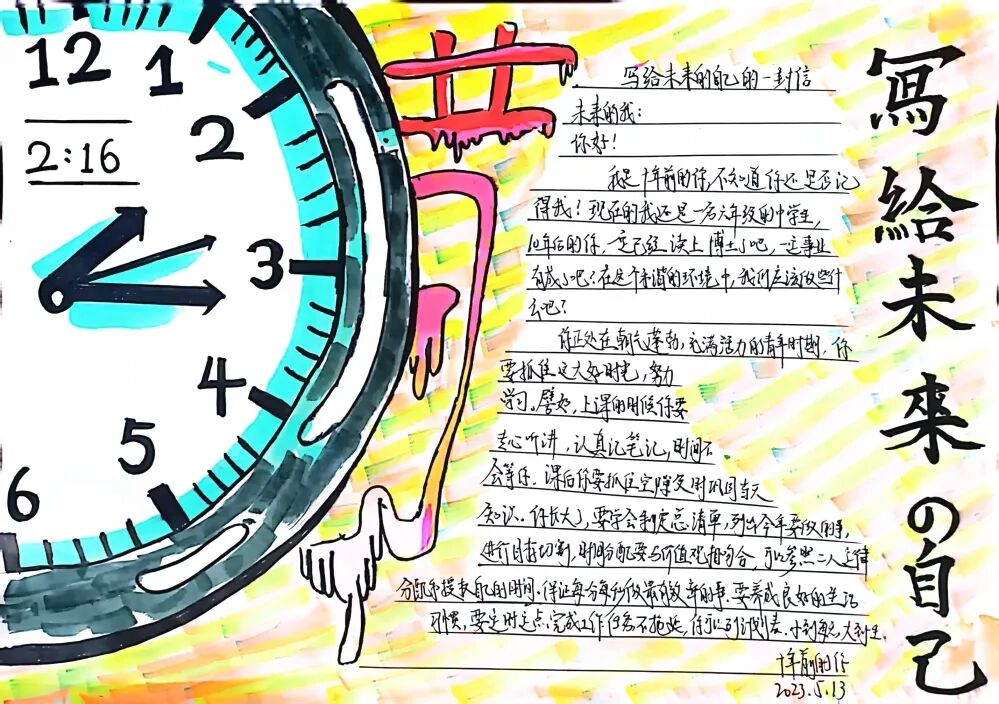 12
1
2
2:16
3
4
5
6
节
寫給未來の自己
写给未来的自己的一封信
未来的我：
你好！
我是十年前的你，不知道你还是否记
得我！现在的我还是一名六年级的中学生，
10年后的你，一定已经读上博士了吧，一定事业
有成了吧？在这个未满的环境中，我们应该做些什
么吧？
你正处在朝气蓬勃，充满活力的青年时期，你
要抓住这大好时光，努力
学习。譬如，上课的时候你要
专心听讲，认真记笔记，时间不
会等你．课后你要抓住空隙及时巩固当天
知识．你长大了，要学会制定总清单，列出今年要做的事，
进行目标切割，时间分配要与价值观相吻合，可以参照二八定律
分配 自己的时间．保证每分每秒做最有效率的事，要养成良好的生活
习惯，要定时定点完成工作任务不拖延，你可以 计划表．小到 ，大到 ．
十年前的你
2023.5.13